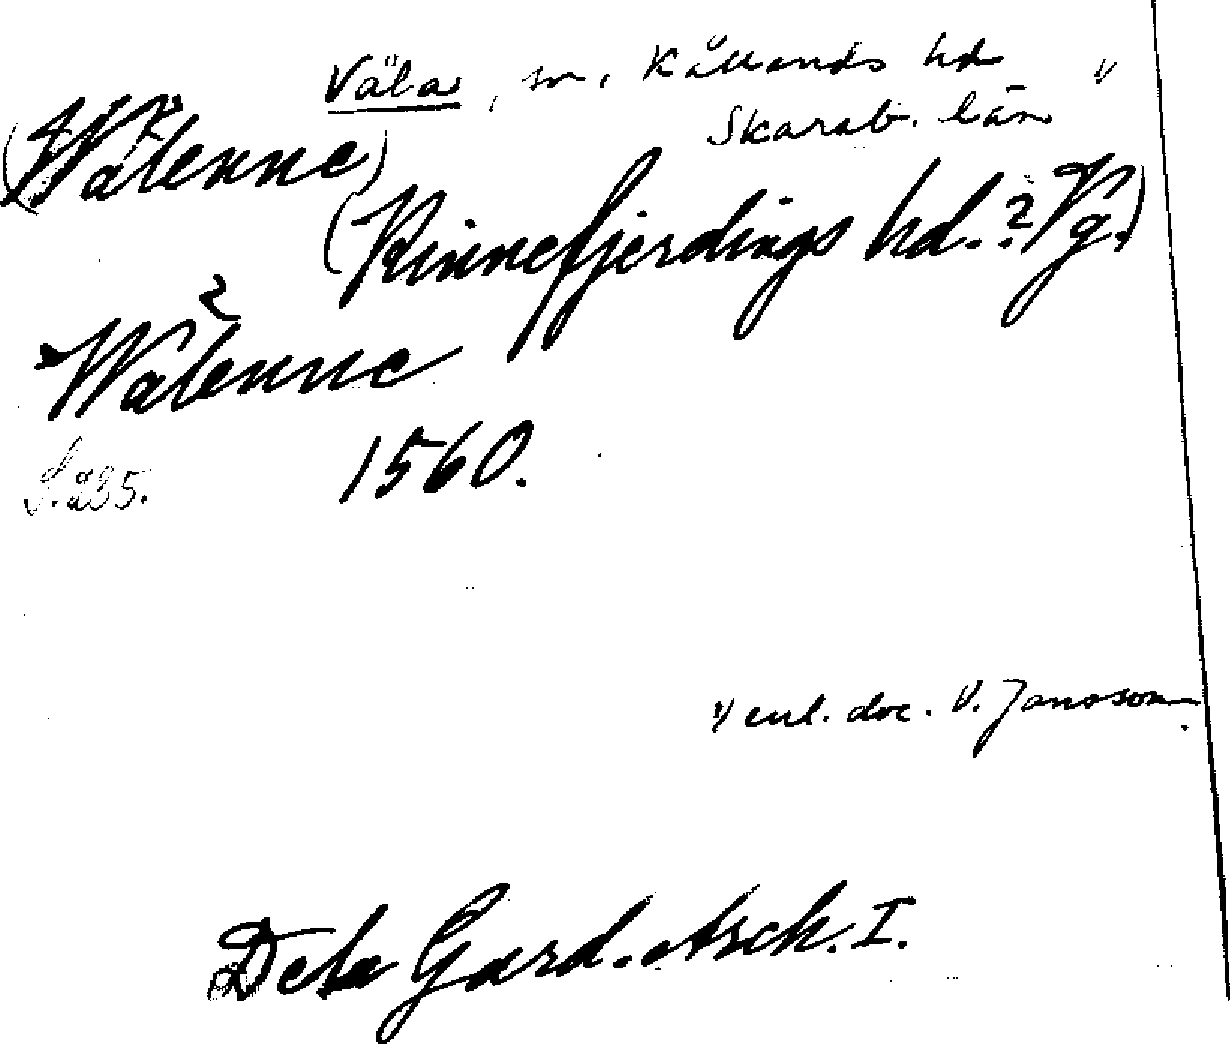 Väla, sn, Kållands hd 1)
Skarab. län
(Wälenne)
(Kinnefjerdings hd.? Vg.)
Wälenne
1560.
S. 235.
1) enl. doc. V. Jansson.
De la Gard. Arch. I.